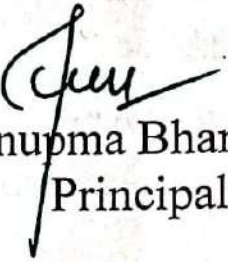 nupma Bhar
Principal